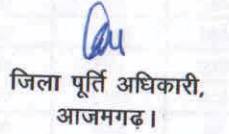 जिला पूर्ति अधिकारी,
आजमगढ़।